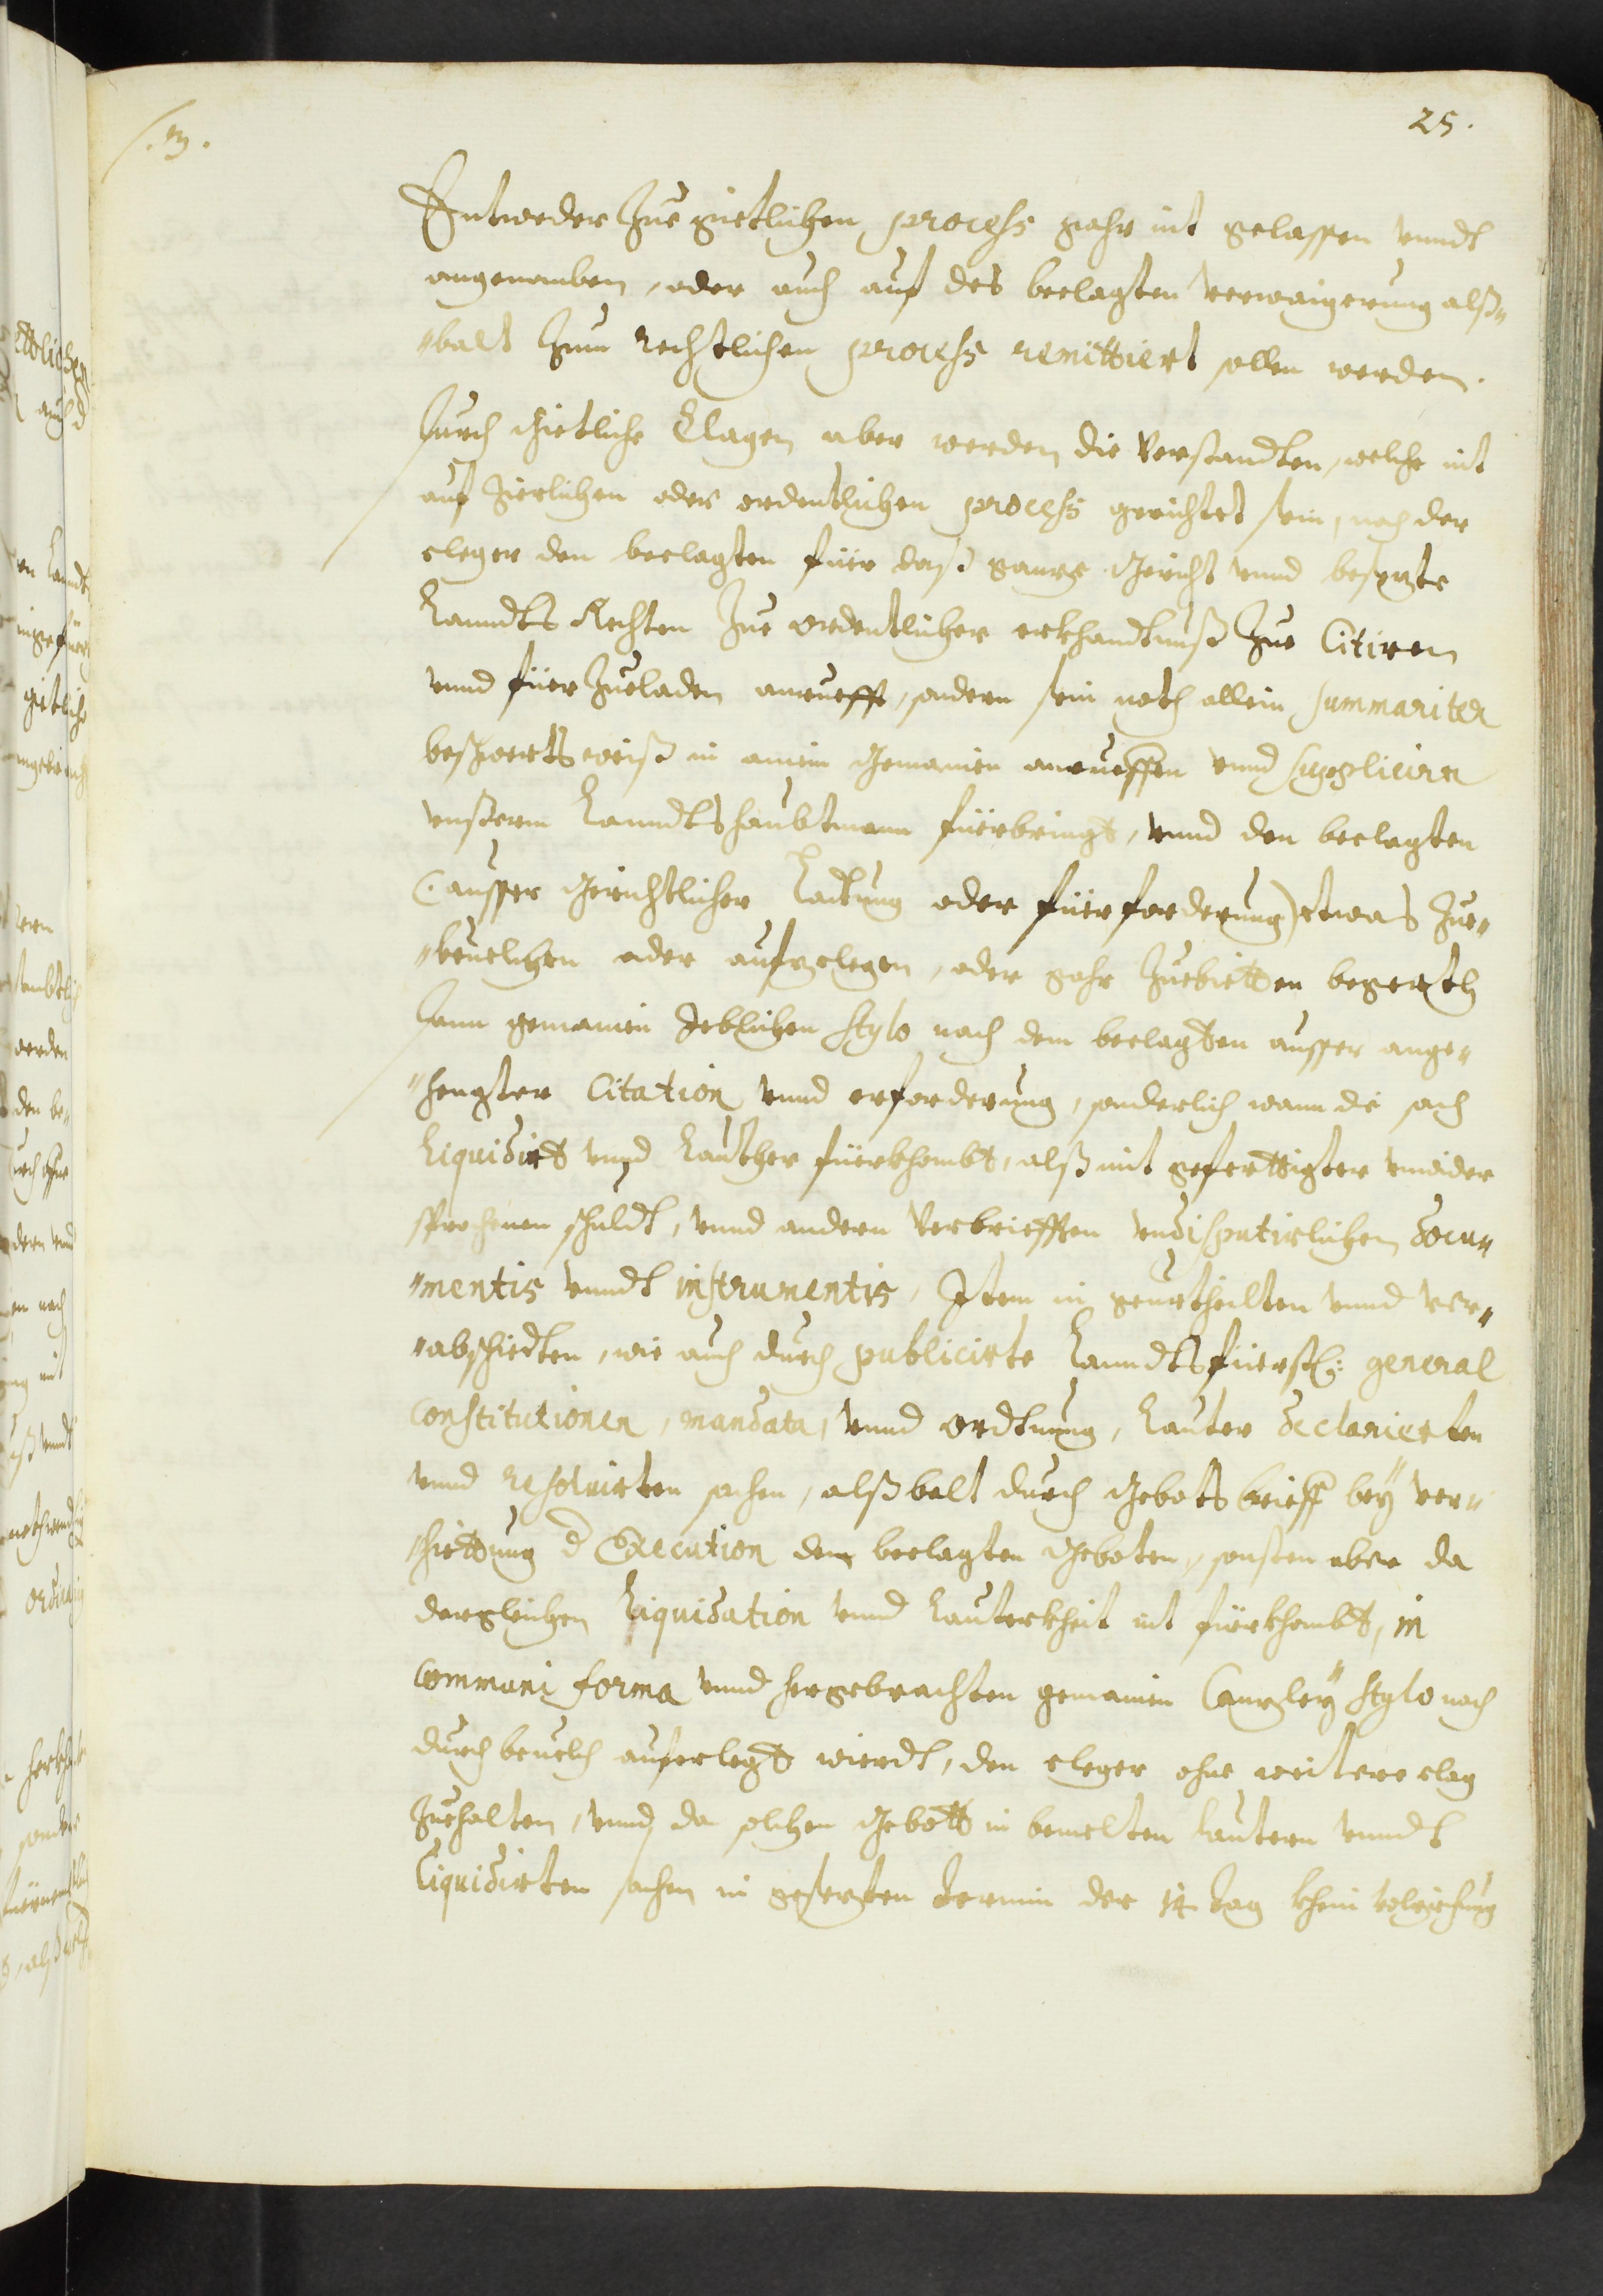 25.
Entweder Zue güetlichen process gahr nit gelassen vnndt
angenomben, oder auch auf des beclagten verwaigerung alß„
„balt Zum Rechtlichen process remittiert sollen werden.
Durch güetliche Clagen aber werden die verstandten, welche nit
auf Zierlichen oder ordentlichen process gerichtet sein, noch der
cleger den beclagten füer daß ganze Gericht vnnd besezte
Lanndts Rechten Zue ordentlicher erkhandtnuß Zue Citiren
vnnd füer Zueladen anruefft, sondern sein noth allein summariter
beschwerts weiß in ainen gemainen anrueffen vnnd suppliciren
vnßerm Lanndtshaubtmann fürbringt, vnnd den beclagten
(: ausser Gerichtlicher Ladung oder füerforderung) etwas Zue„
„beuelchen oder aufzelegen, oder gahr Zuebietten begerth
Dann gemainen Ieblichen Stylo nach dem beclagten ausser ange„
„hengter Citation vnnd erforderung, sonderlich wann die sach
Liquidirt vnnd Lauther fürkhombt, alß mit geferttigter vnwider
sprochenen schuldt, vnnd andern Verbriefften vndisputirlichen docu„
„mentis vnndt instrumentis, Item in geurtheilten vnnd ver„
„abschiedten, wie auch durch publicirte Lanndtsfüerstl: general
constitutionen, mandata, vnnd Ordtnung, Lauter declarierten
vnnd resoluirten sachen, alßbalt durch Gebotsbrieff bey ver„
„hiettung d Execution dem beclagten Geboten, sonsten aber da
dergleichen Liquidation vnnd Lauterkheit nit fürkhombt, in
communi forma vnnd hergebrachten gemainen Canzley Stylo nach
durch beuelch auferlegt wierdt, den cleger ohne weitere clag
Zuehalten, vnnd da solchen Gebott in bemelten Lautern vnndt
Liquidirten sachen in gesezten termin der 14 tag khein volziehung